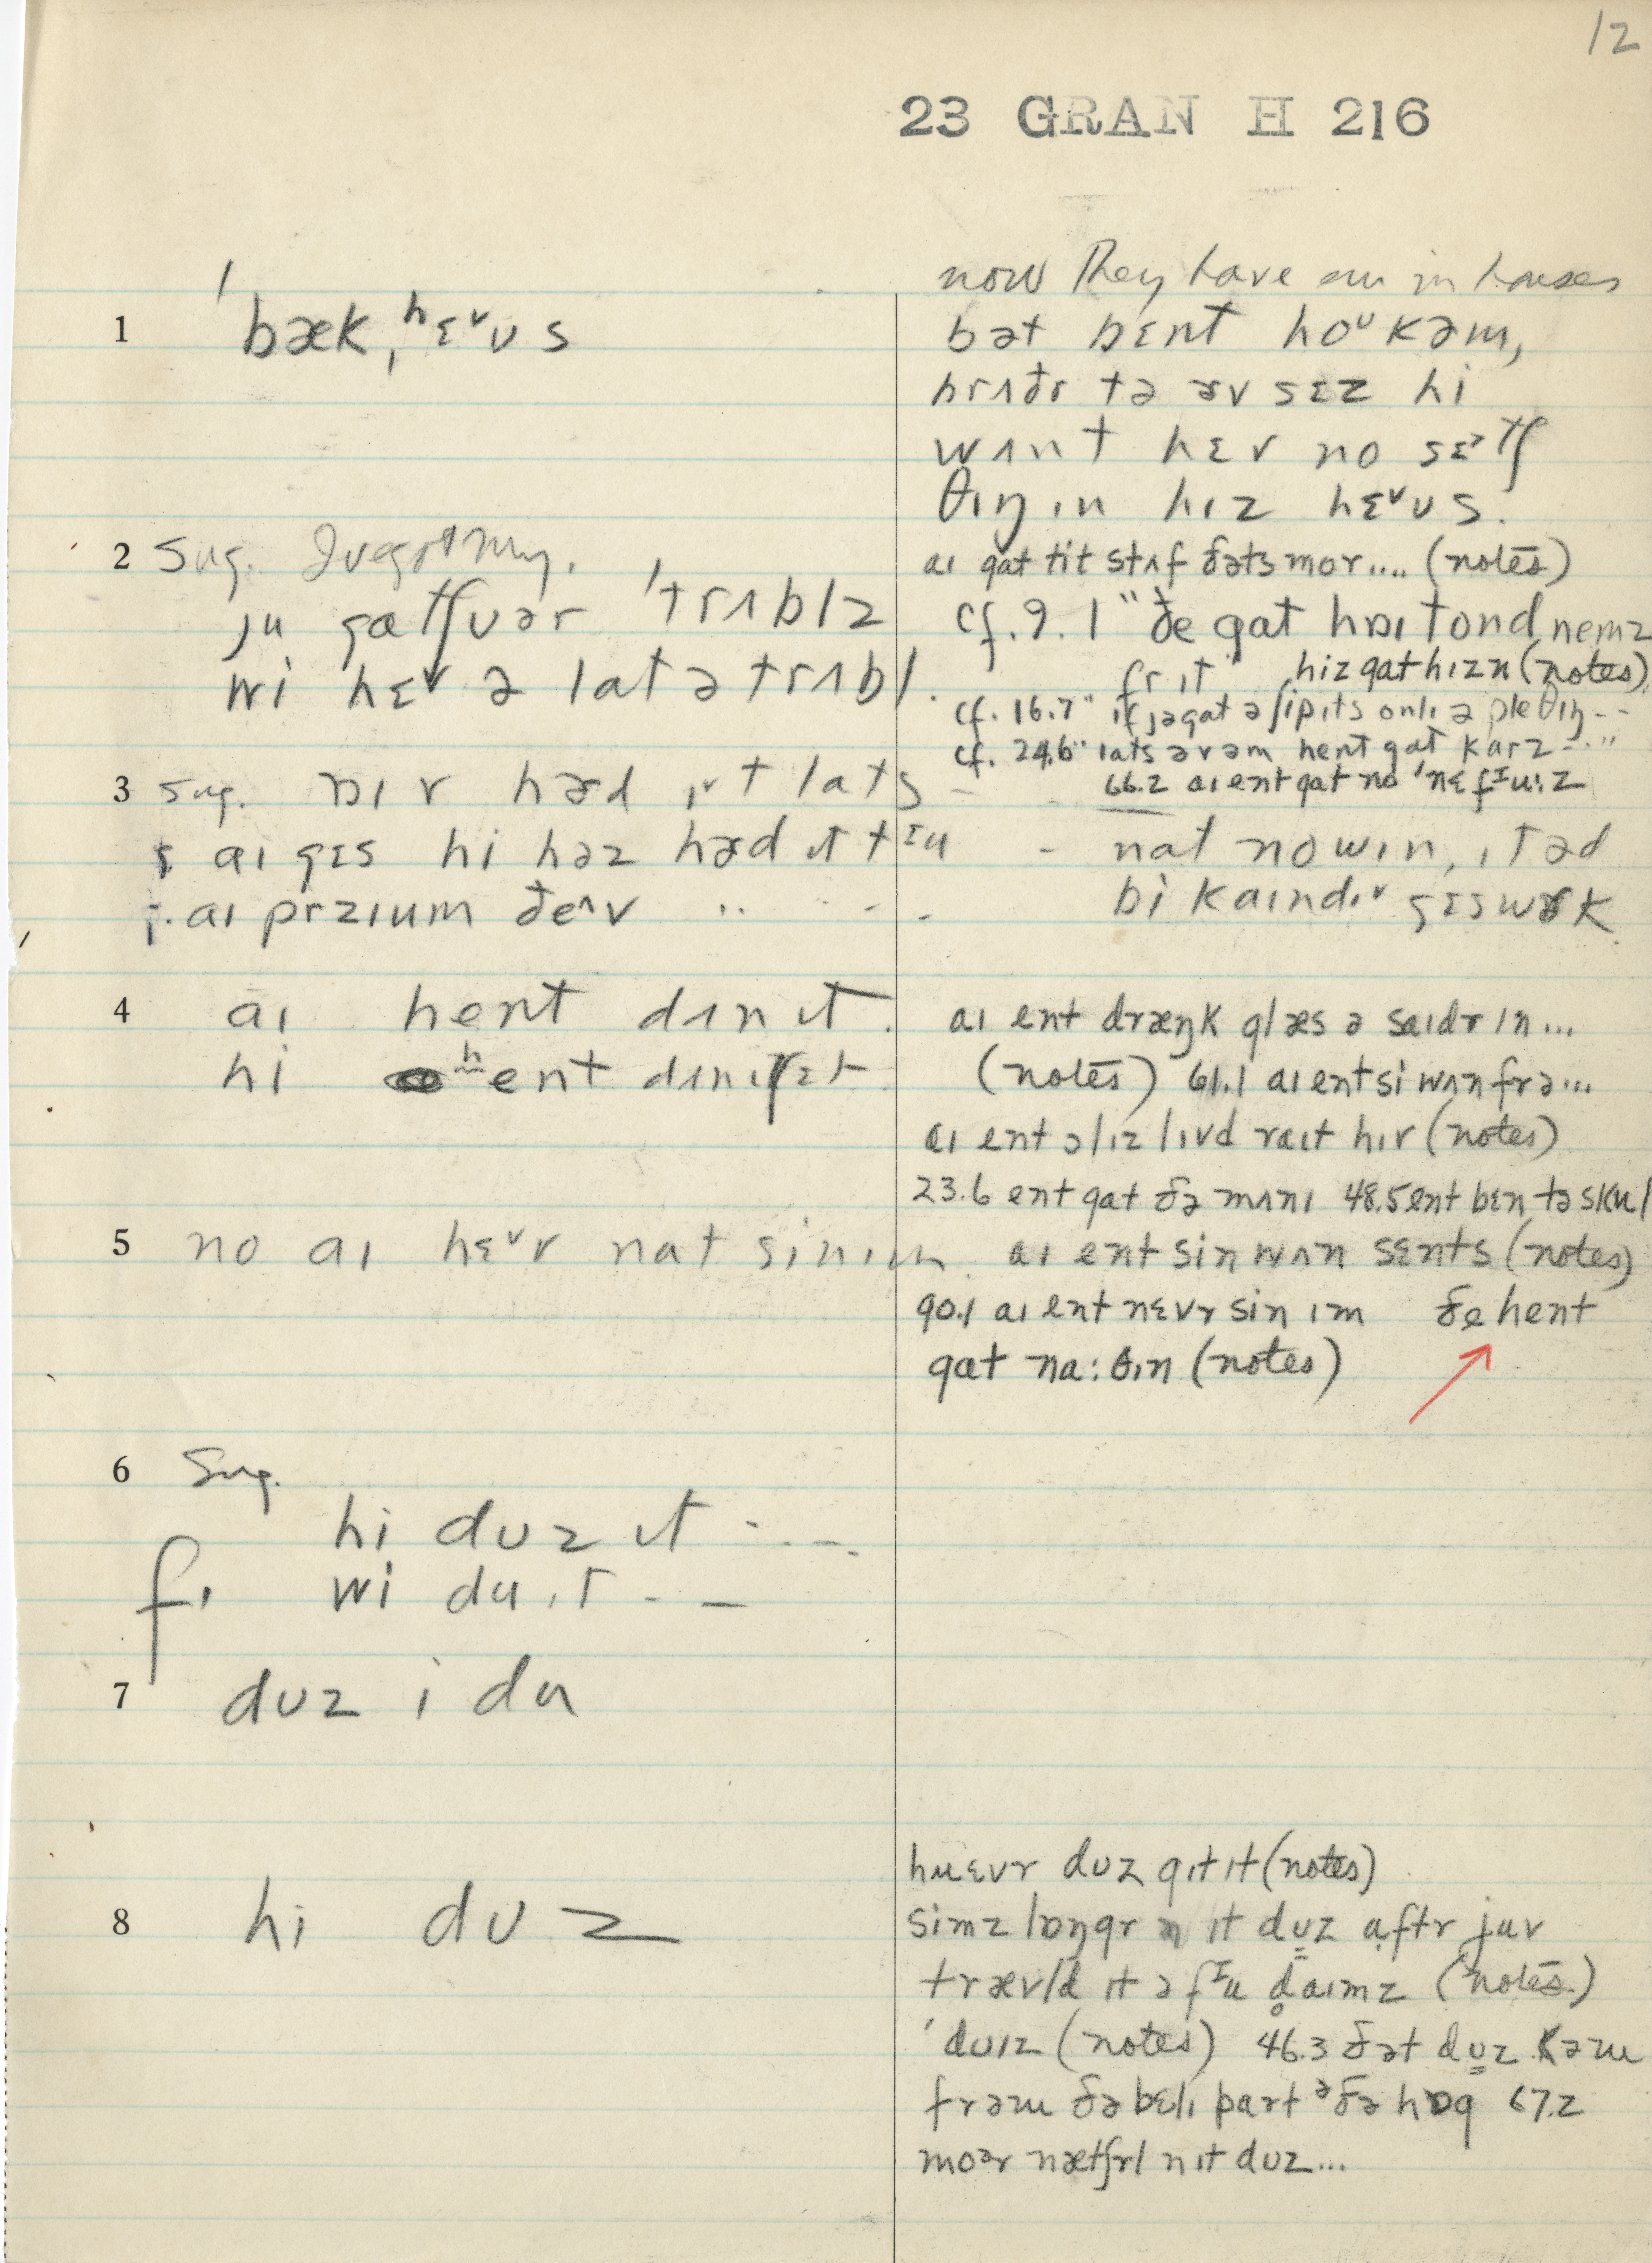 12
23 GRAN H 216
1 ˈbæk, hɛᵛʊs
now they have em in houses
bət bɛnt hoᵘ kəm,
brʌðr tə ɚv sɛz hi
wʌnt hɛv no sɛᵊtʃ
θɪŋ ɪn hɪz hɛᵛʊs.
2 Sug.
ju gatʃuər ˈtrʌblz
wi hɛv ə lat ə trʌbl.
aɪ gat tit stʌf ðəts mor.... (notes)
cf. 9.1 "ðe gat hɒɪ tond nemz
fr ɪt" hiz gat hɪzn (notes)
cf. 16.7 " if jə gat ə ʃip ɪts onlɪ ə ple θɪŋ--
cf. 24.6 " lats əv əm hent gat karz --"
66.2 aɪ ent gat no ˈnɛfᶦuːz
3 sug. ɒɪ v hɚd ɪt lats -
aɪ gɛs hi həz hɚd ɪt tᶦu -
aɪ przɪum ðeʌv .. - - -
nat nowɪn, ɪt əd
bi kaɪndɪv gɛswɚk
4 aɪ hent dʌn ɪt.
hi hent dʌn ɪt
aɪ ent dræŋk glæs ə saɪdr ɪn...
(notes) 61.1 aɪ ent si wʌn frə...
aɪ ent ɔlɪz lɪvd raɪt hɪr (notes)
23.6 ent gat ðə mʌnɪ 48.5 ent bɛn tə skul
5 no aɪ hɛᵛv nat sin ɪm.
aɪ ent sin wʌn sɛnts (notes)
90.1 aɪ ent nɛvr sin ɪm ðe hent
gat na:θɪn (notes)
6 Sug.
hi dʊz ɪt - - -
f. wi du ɪt - -
7 dʊz i du
8 hi dʊz
huɛvr dʊz gɪt ɪt (notes)
simz lɒŋgr n ɪt dʊz aftr juv
trævld ɪt ə fᶦu d̥aɪmz (notes)
ˈdʊɪz (notes) 46.3 ðət dʊz kəm
frəm ðə bɛlɪ part ᵊðə hɒg 67.2
moᵊr nætʃrl n ɪt dʊz...